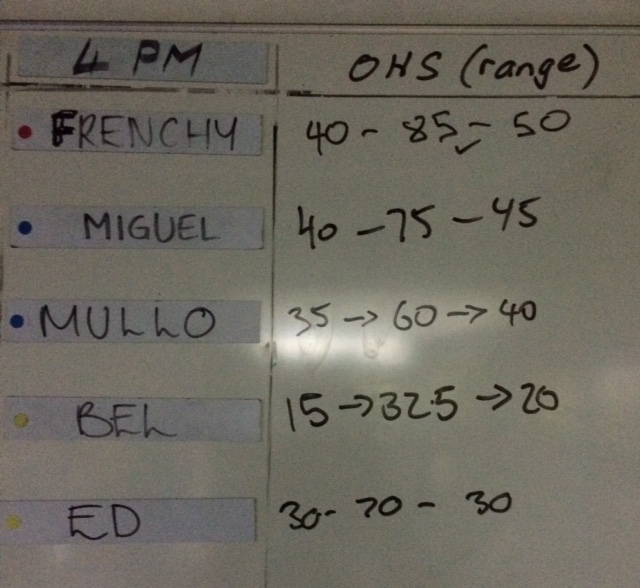 4 PM OHS (range)
FRENCHY 40 - 85 - 50
MIGUEL 40 - 75 - 45
MULLO 35 → 60 → 40
BEL 15 → 32.5 → 20
ED 30 - 70 - 30